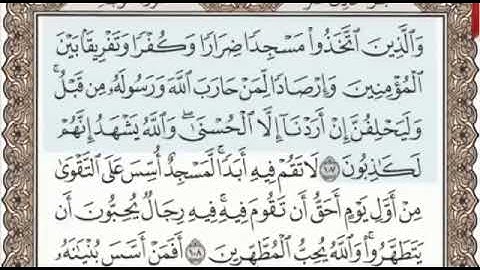 وَالَّذِينَ اتَّخَذُوا مَسْجِدًا ضِرَارًا وَكُفْرًا وَتَفْرِيقًا بَيْنَ
الْمُؤْمِنِينَ وَإِرْصَادًا لِّمَنْ حَارَبَ اللَّهَ وَرَسُولَهُ مِن قَبْلُ ۚ
وَلَيَحْلِفُنَّ إِنْ أَرَدْنَا إِلَّا الْحُسْنَىٰ ۖ وَاللَّهُ يَشْهَدُ إِنَّهُمْ
لَكَاذِبُونَ ١٠٧ لَا تَقُمْ فِيهِ أَبَدًا ۚ لَّمَسْجِدٌ أُسِّسَ عَلَى التَّقْوَىٰ
مِنْ أَوَّلِ يَوْمٍ أَحَقُّ أَن تَقُومَ فِيهِ ۚ فِيهِ رِجَالٌ يُحِبُّونَ أَن
يَتَطَهَّرُوا ۚ وَاللَّهُ يُحِبُّ الْمُطَّهِّرِينَ ١٠٨ أَفَمَنْ أَسَّسَ بُنْيَانَهُ